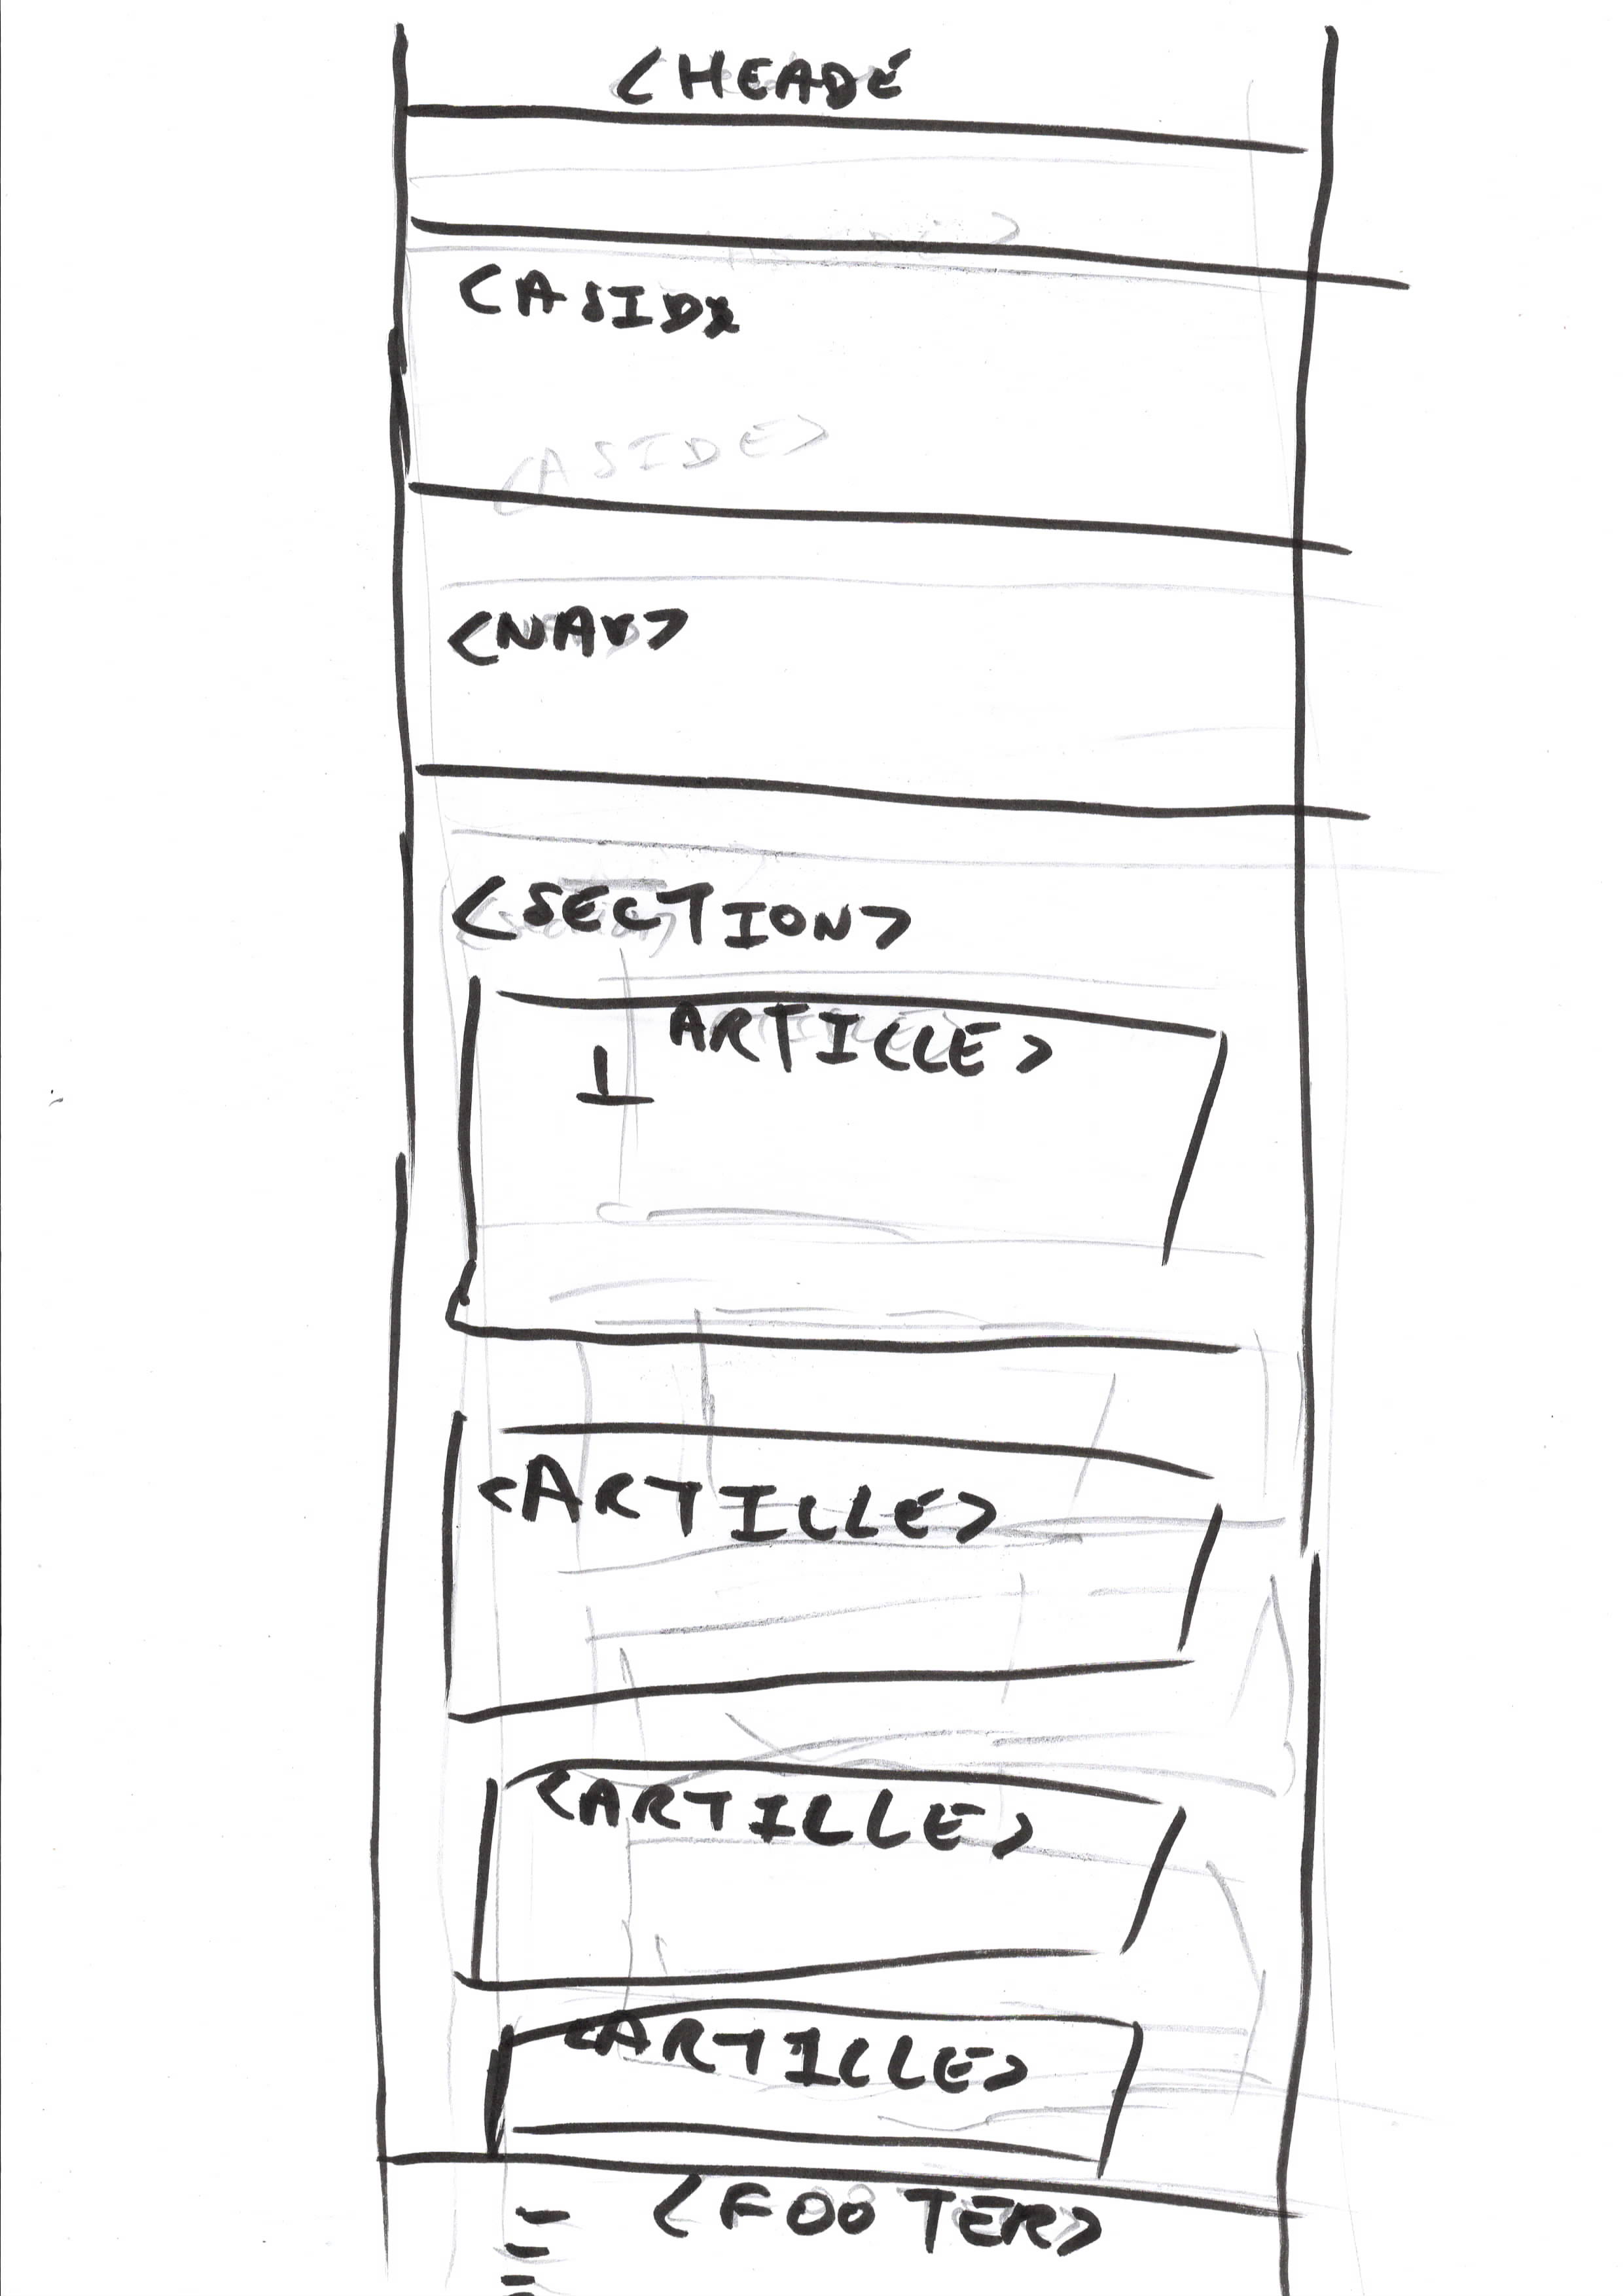 <HEADE
<ASIDE
<ASIDE>
<NAV>
<SECTION>
ARTICLE>
<ARTICLE>
<ARTICLE>
<ARTICLE>
<FOOTER>